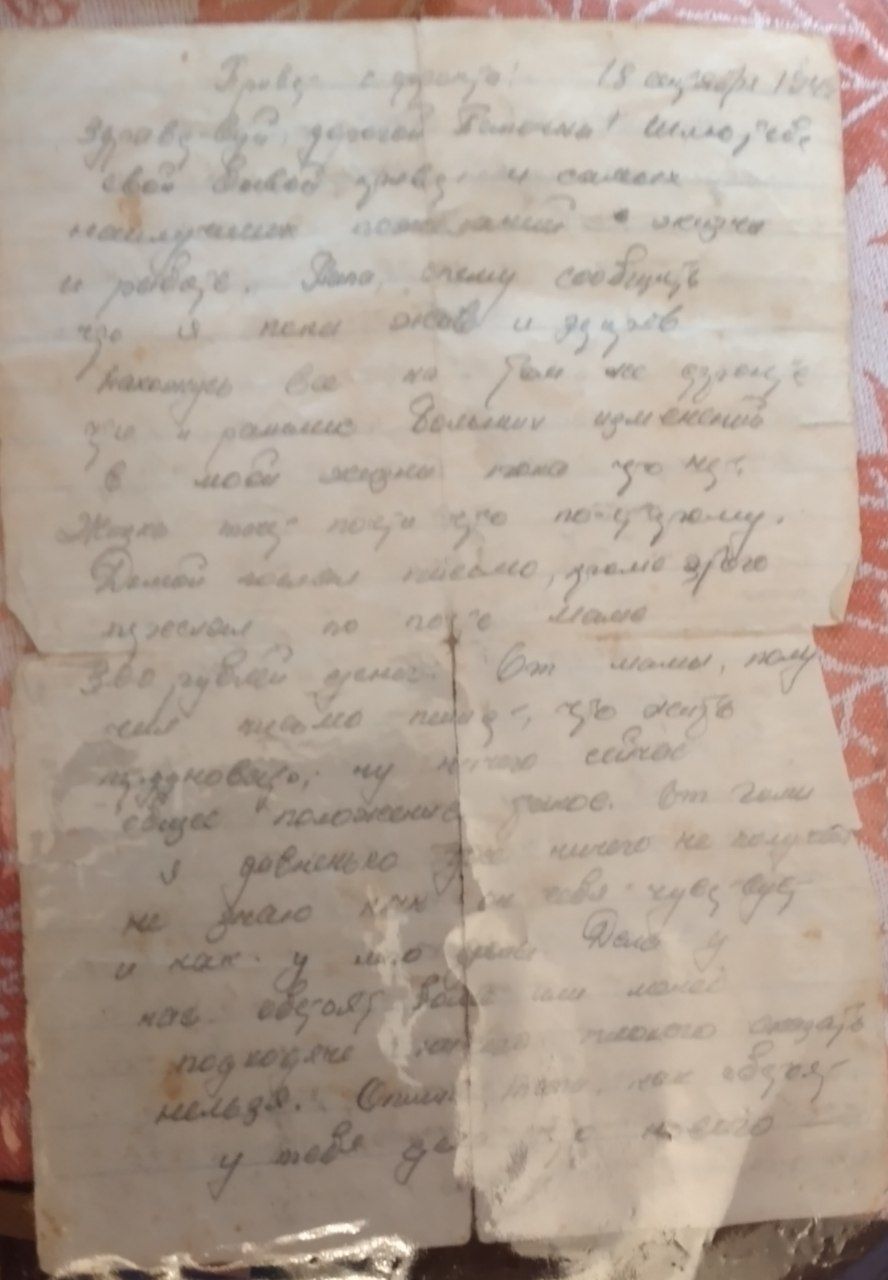 Привет с фронта! 18 сентября
Здравствуй, дорогой Папочка! Шлю тебе
свой боевой привет и самых
наилучших пожеланий в жизни
и работе. Папа, спешу сообщить
что я пока жив и здоров
Нахожусь все на том же фронте
что и раньше Больших изменений
в моей жизни пока что нет.
Жизнь течет почти что по-старому.
Домой послал письмо, кроме этого
переслал по почте маме
300 рублей денег. От мамы, полу
чил письмо пишет, что жить
трудновато, ну ничего сейчас
общее положение такое. От Гали
я давненько уже ничего не получал
не знаю как он себя чувствует
и как у него дела. Дела у
нас обстоят более или менее
подходяще ничего плохого сказать
нельзя. Опиши, папа, как обстоят
у тебя дела что нового